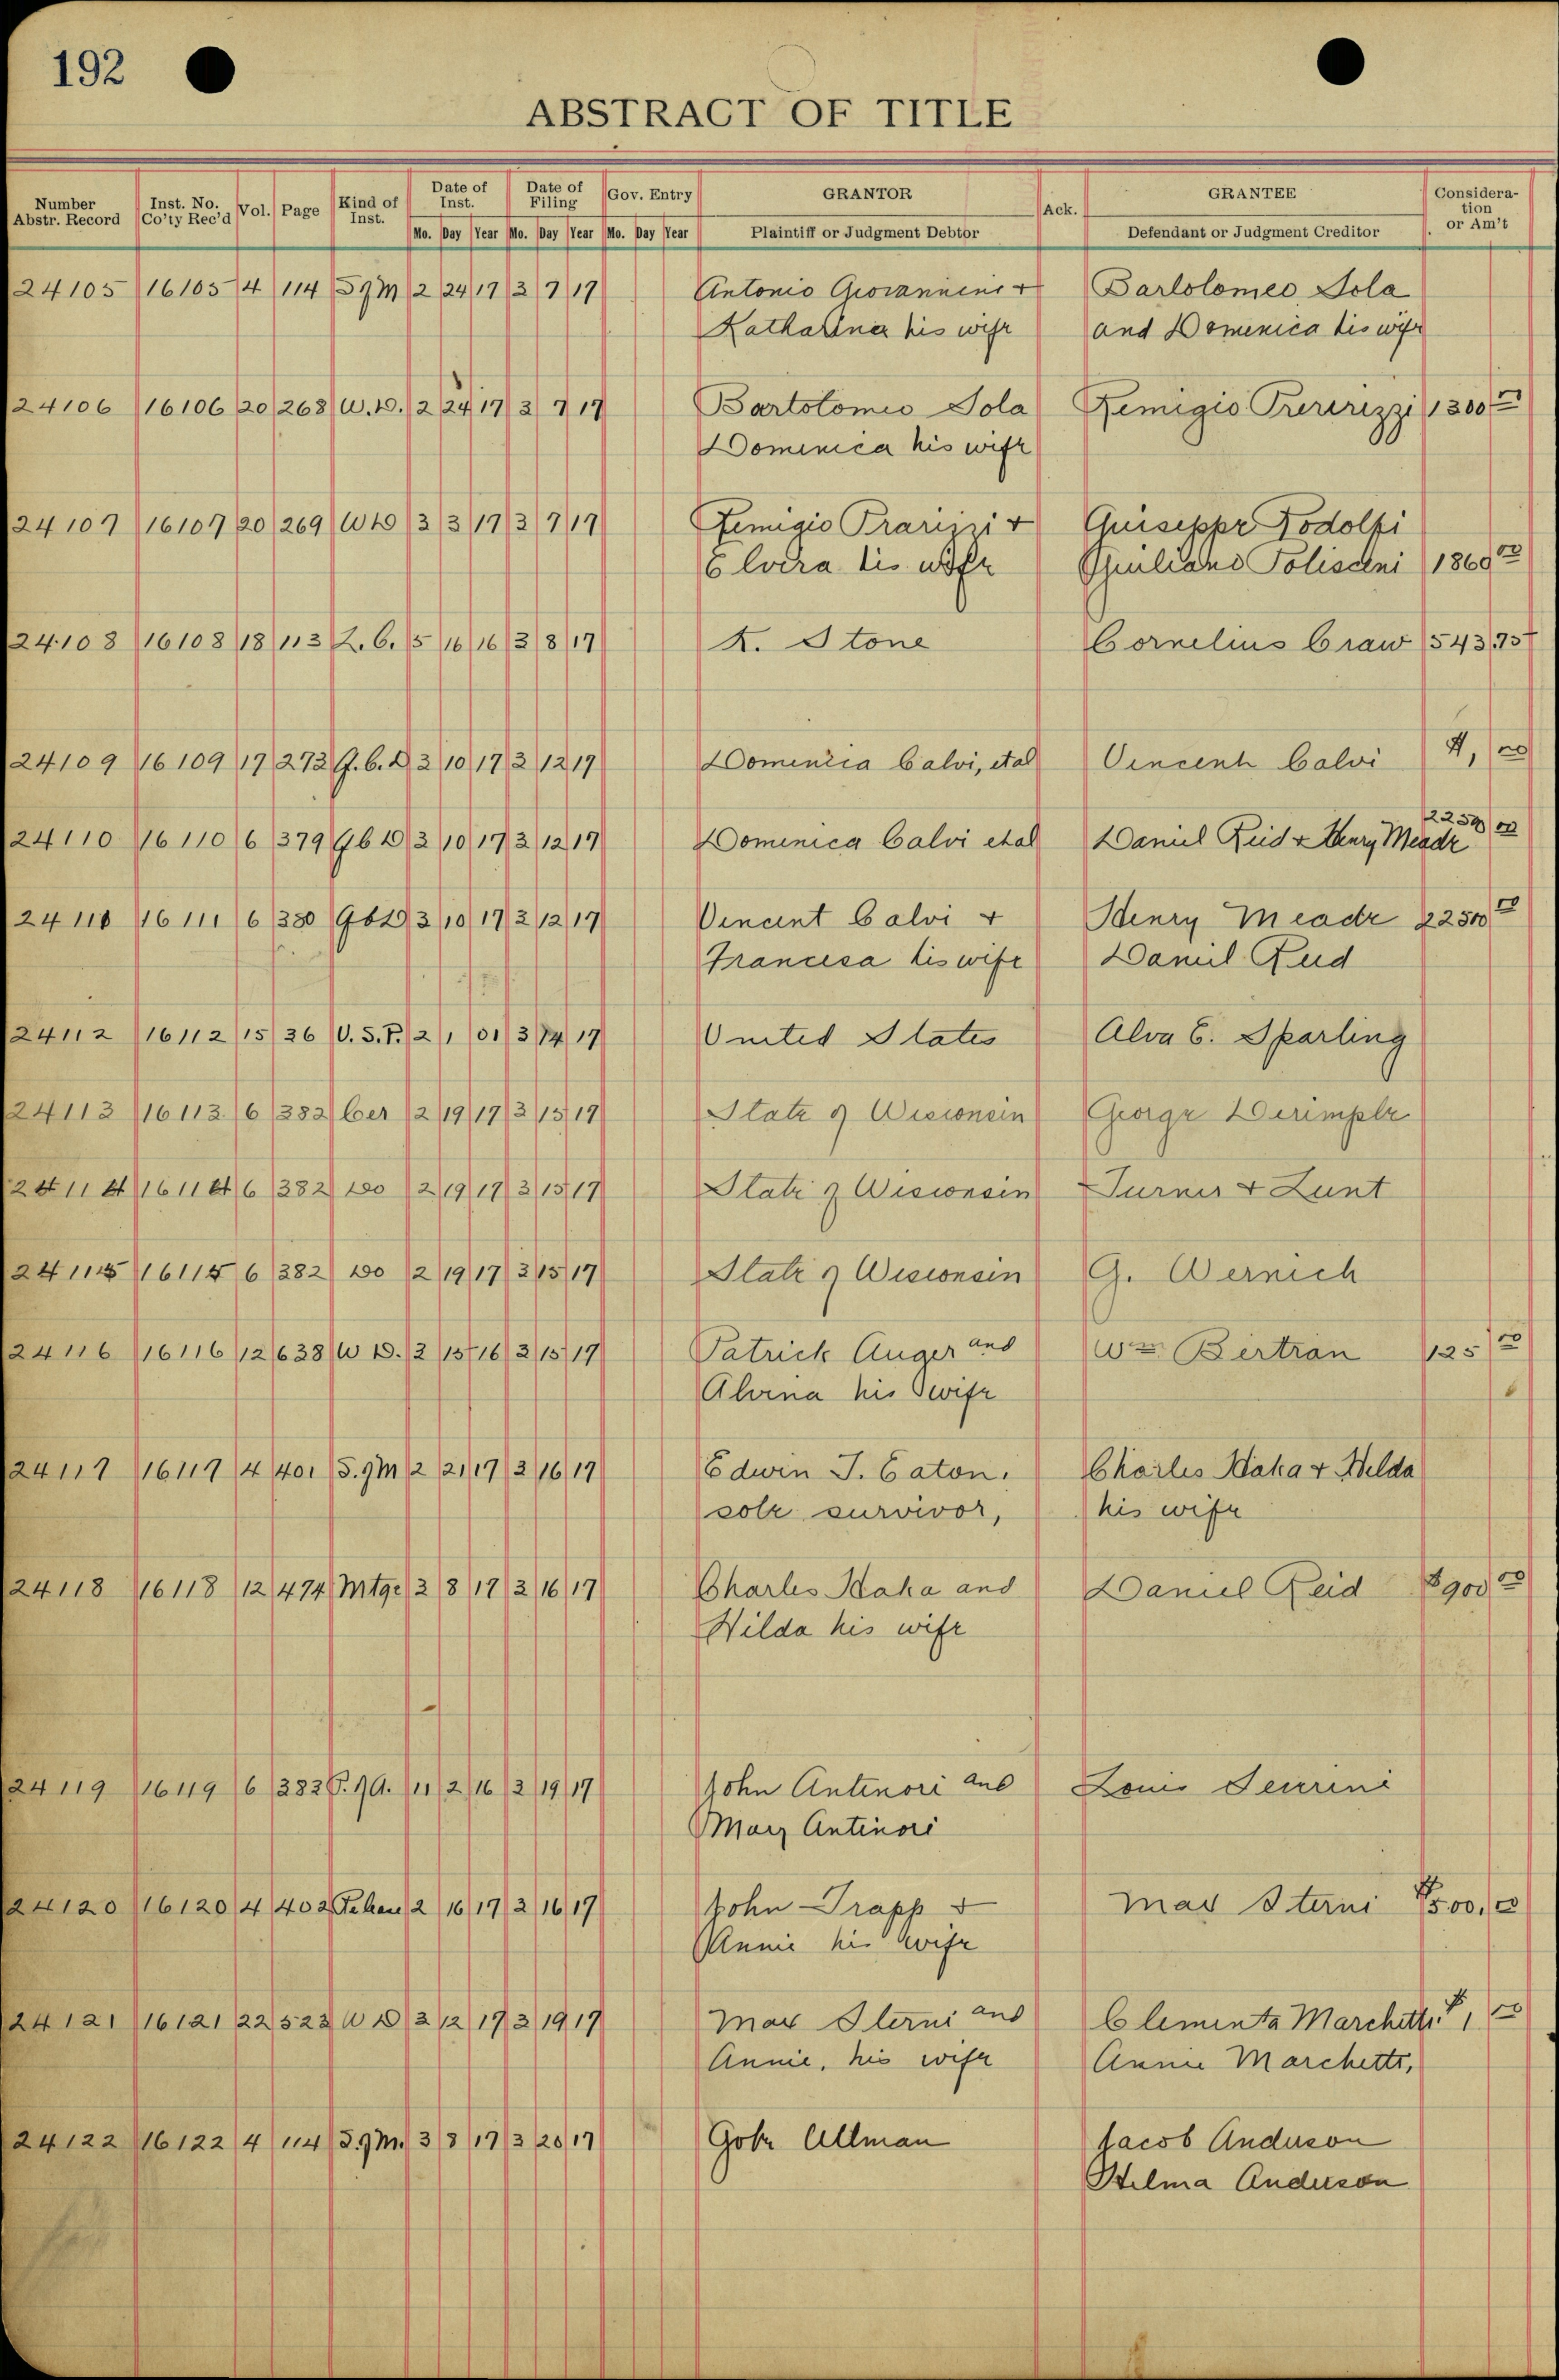 192
ABSTRACT OF TITLE
Number Abstr. Record Inst. No. Co'ty Rec'd Vol. Page Kind of Inst. Date of Inst. Date of Filing Gov. Entry GRANTOR Ack. GRANTEE Consideration or Am't
Mo. Day Year Mo. Day Year Mo. Day Year Plaintiff or Judgment Debtor Defendant or Judgment Creditor
24105 16105 4 114 2 24 17 3 7 17 Antonio Giovannini + Bartolomeo Sola
Katharina his wife and Domenica his wife
24106 16106 20 268 W.D. 2 24 17 3 7 17 Bartolomio Sola Remigio 1300 00
Domenica his wife
24107 16107 20 269 WD 3 3 17 3 7 17 Remigio + Guiseppe Rodolfi
Elvira his wife 1860 00
24108 16108 18 113 L.C. 5 16 16 3 8 17 K. Stone Cornelius Craw 543,75
24109 16109 17 273 Q.C.D 3 10 17 3 12 17 Domenica Calvi, etal Vincent Calvi 00
24110 16110 6 379 QCD 3 10 17 3 12 17 Domenica Calvi etal Daniel Reid + Henry Meade 2250 00
24111 16111 6 380 QCD 3 10 17 3 12 17 Vincent Calvi + Henry Meade 2250 00
Francesa his wife Daniel Reid
24112 16112 15 36 U.S.P. 2 1 01 3 14 17 United States Alva E. Sparling
24113 16113 6 382 Cer 2 19 17 3 15 17 State of Wisconsin George Derimple
24114 16114 6 382 Do 2 19 17 3 15 17 State of Wisconsin Turner & Lunt
24115 16115 6 382 Do 2 19 17 3 15 17 State of Wisconsin G. Wernich
24116 16116 12 638 W D. 2 15 16 3 15 17 Patrick Auger and Wm Bertran 125 00
his wife
24117 16117 4 401 S.M 2 21 17 3 16 17 Edwin J. Eaton. Charles Haka + Helda
sole survivor, his wife
24118 16118 12 474 Mtge 3 8 17 3 16 17 Charles Haka and Daniel Reid $900 00
Hilda his wife
24119 16119 6 383 11 2 16 3 19 17 John Antinori and Louis
Mary Antinori
24120 16120 4 402 2 16 17 3 16 17 John Trapp + Max Sterni $500,00
Annie his wife
24121 16121 22 523 W D 3 12 17 3 19 17 Max Sterni and Clementa Marchetti $1, 00
Annie, his wife Annie Marchetti,
24122 16122 4 114 S.M. 3 8 17 3 20 17 Allman Jacob Anderson
Helma Anderson